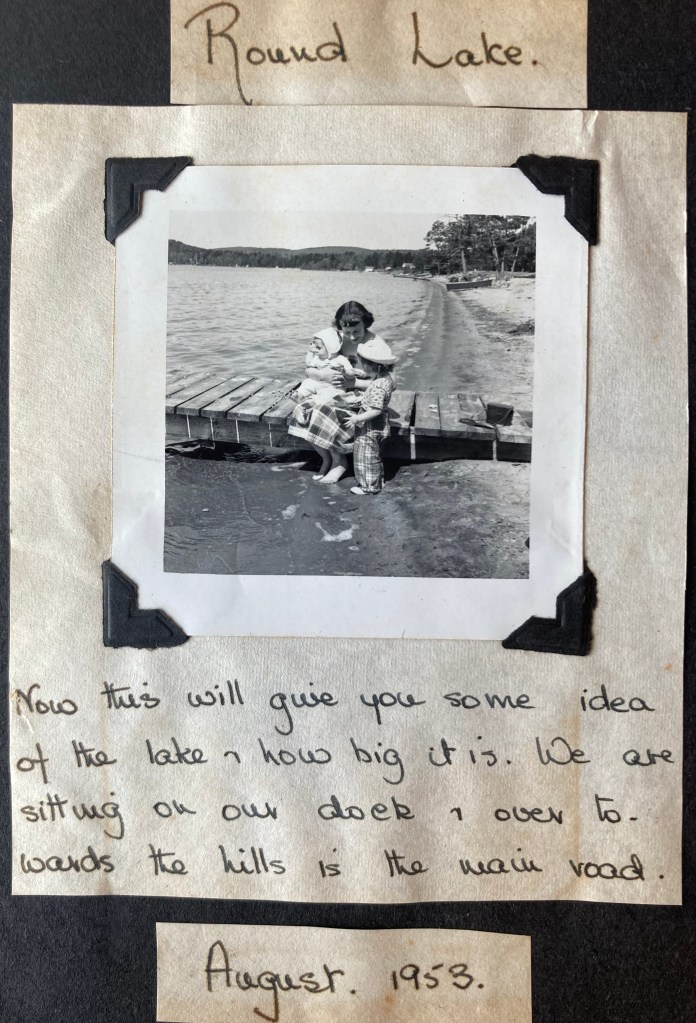 Round Lake.
Now this will give you some idea
of the lake & how big it is. We are
sitting on our dock & over to-
wards the hills is the main road.
August. 1953.